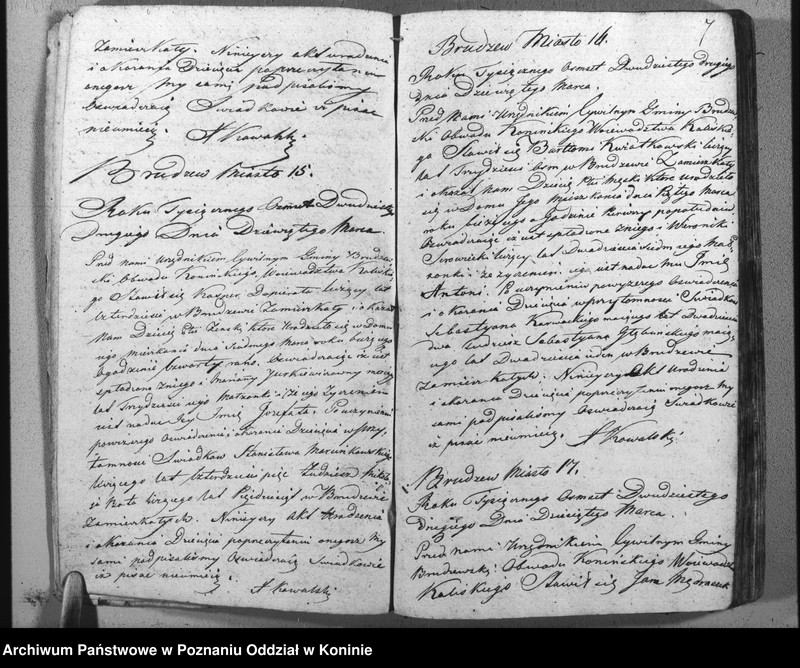 Zamieszkały. Ninieyszy akt urodzenia
i okazania Dziecięcia po przeczytaniu
onegosz My sami podpisaliśmy
Oswiadczaią Swiadkowie iż pisać
nieumieią. A Kowalski
Brudzew Miasto 15.
Roku Tysiącznego Osmset Dwudziestego
Drugiego Dnia Dziewiętego Marca
Przed nami Urzędnikiem Cywilnym Gminy Brudzew
ski Obwodu Konińskiego, Woiewodztwa Kaliskie
go Stawił się Kasper liczący lat
czterdzieści w Brudzewie Zamieszkały i okazał
Nam Dziecię Płci Żeński które Urodziło się w Domu
iego mieszkania dnia Siodmego Marca roku bieżącego
O godzinie czwarty rano. Oswiadczaiąc iż iest
spłodzone z niego i Maryanny maiący
lat Trzydzieści iego Małżonki i że iego Życzeniem
iest nadać Jey Imię Jozefata. Po uczynieniu
powyższego Oswiadczenia i okazania Dziecięcia w przy
tomności Swiadków Stanisława
liczącego lat czterdzieści pięć tudzież
liczącego lat Pięćdziesiąt w Brudzewie
Zamieszkałych. Ninieyszy Akt Urodzenia
i okazania Dziecięcia po przeczytaniu onegosz My
sami podpisaliśmy Oswiadczaią Swiadkowie
iż pisać nieumieią.
A Kowalski
7
Brudzew Miasto 16.
Roku Tysiącznego Osmset Dwudziestego drugiego
Dnia Dziewiętego Marca.
Przed Nami Urzędnikiem Cywilnym Gminy Brudzew
ski Obwodu Konińskiego Woiewodztwa Kaliskie
go Stawił się Bartłomi Kwiatkowski liczący
lat Trzydzieści w Brudzewie Zamieszkały
i okazał Nam Dziecię Płci Męski które urodziło
się w Domu Jego Mieszkania dnia Piątego Marca
roku bieżącego o Godzinie po południu
Oswiadczaiąc iż iest spłodzone z niego i Weroniki
liczący lat Dwadzieścia siedm iego Mał
żonki i że życzeniem iego iest nadać mu Imię
Antoni. Po uczynieniu powyższego Oswiadczenia
i okazania Dziecięcia w przytomności Swiadków
Sebastyana maiącego lat Dwadzieścia
dwa tudzież Sebastyana maią
cego lat Dwadzieścia ieden w Brudzewie
Zamieszkałych. Ninieyszy Akt Urodzenia
i okazania Dziecięcia po przeczytaniu onegosz My
sami podpisaliśmy Oswiadczaią Swiadkowie
iż pisać nieumieią. A Kowalski
Brudzew Miasto 17.
Roku Tysiącznego Osmset Dwudziestego
Drugiego Dnia Dziesiętego Marca.
Przed nami Urzędnikiem Cywilnym Gminy
Brudzewski Obwodu Konińskiego Woiewodz
Kaliskiego Stawił się Jan
Archiwum Państwowe w Poznaniu Oddział w Koninie